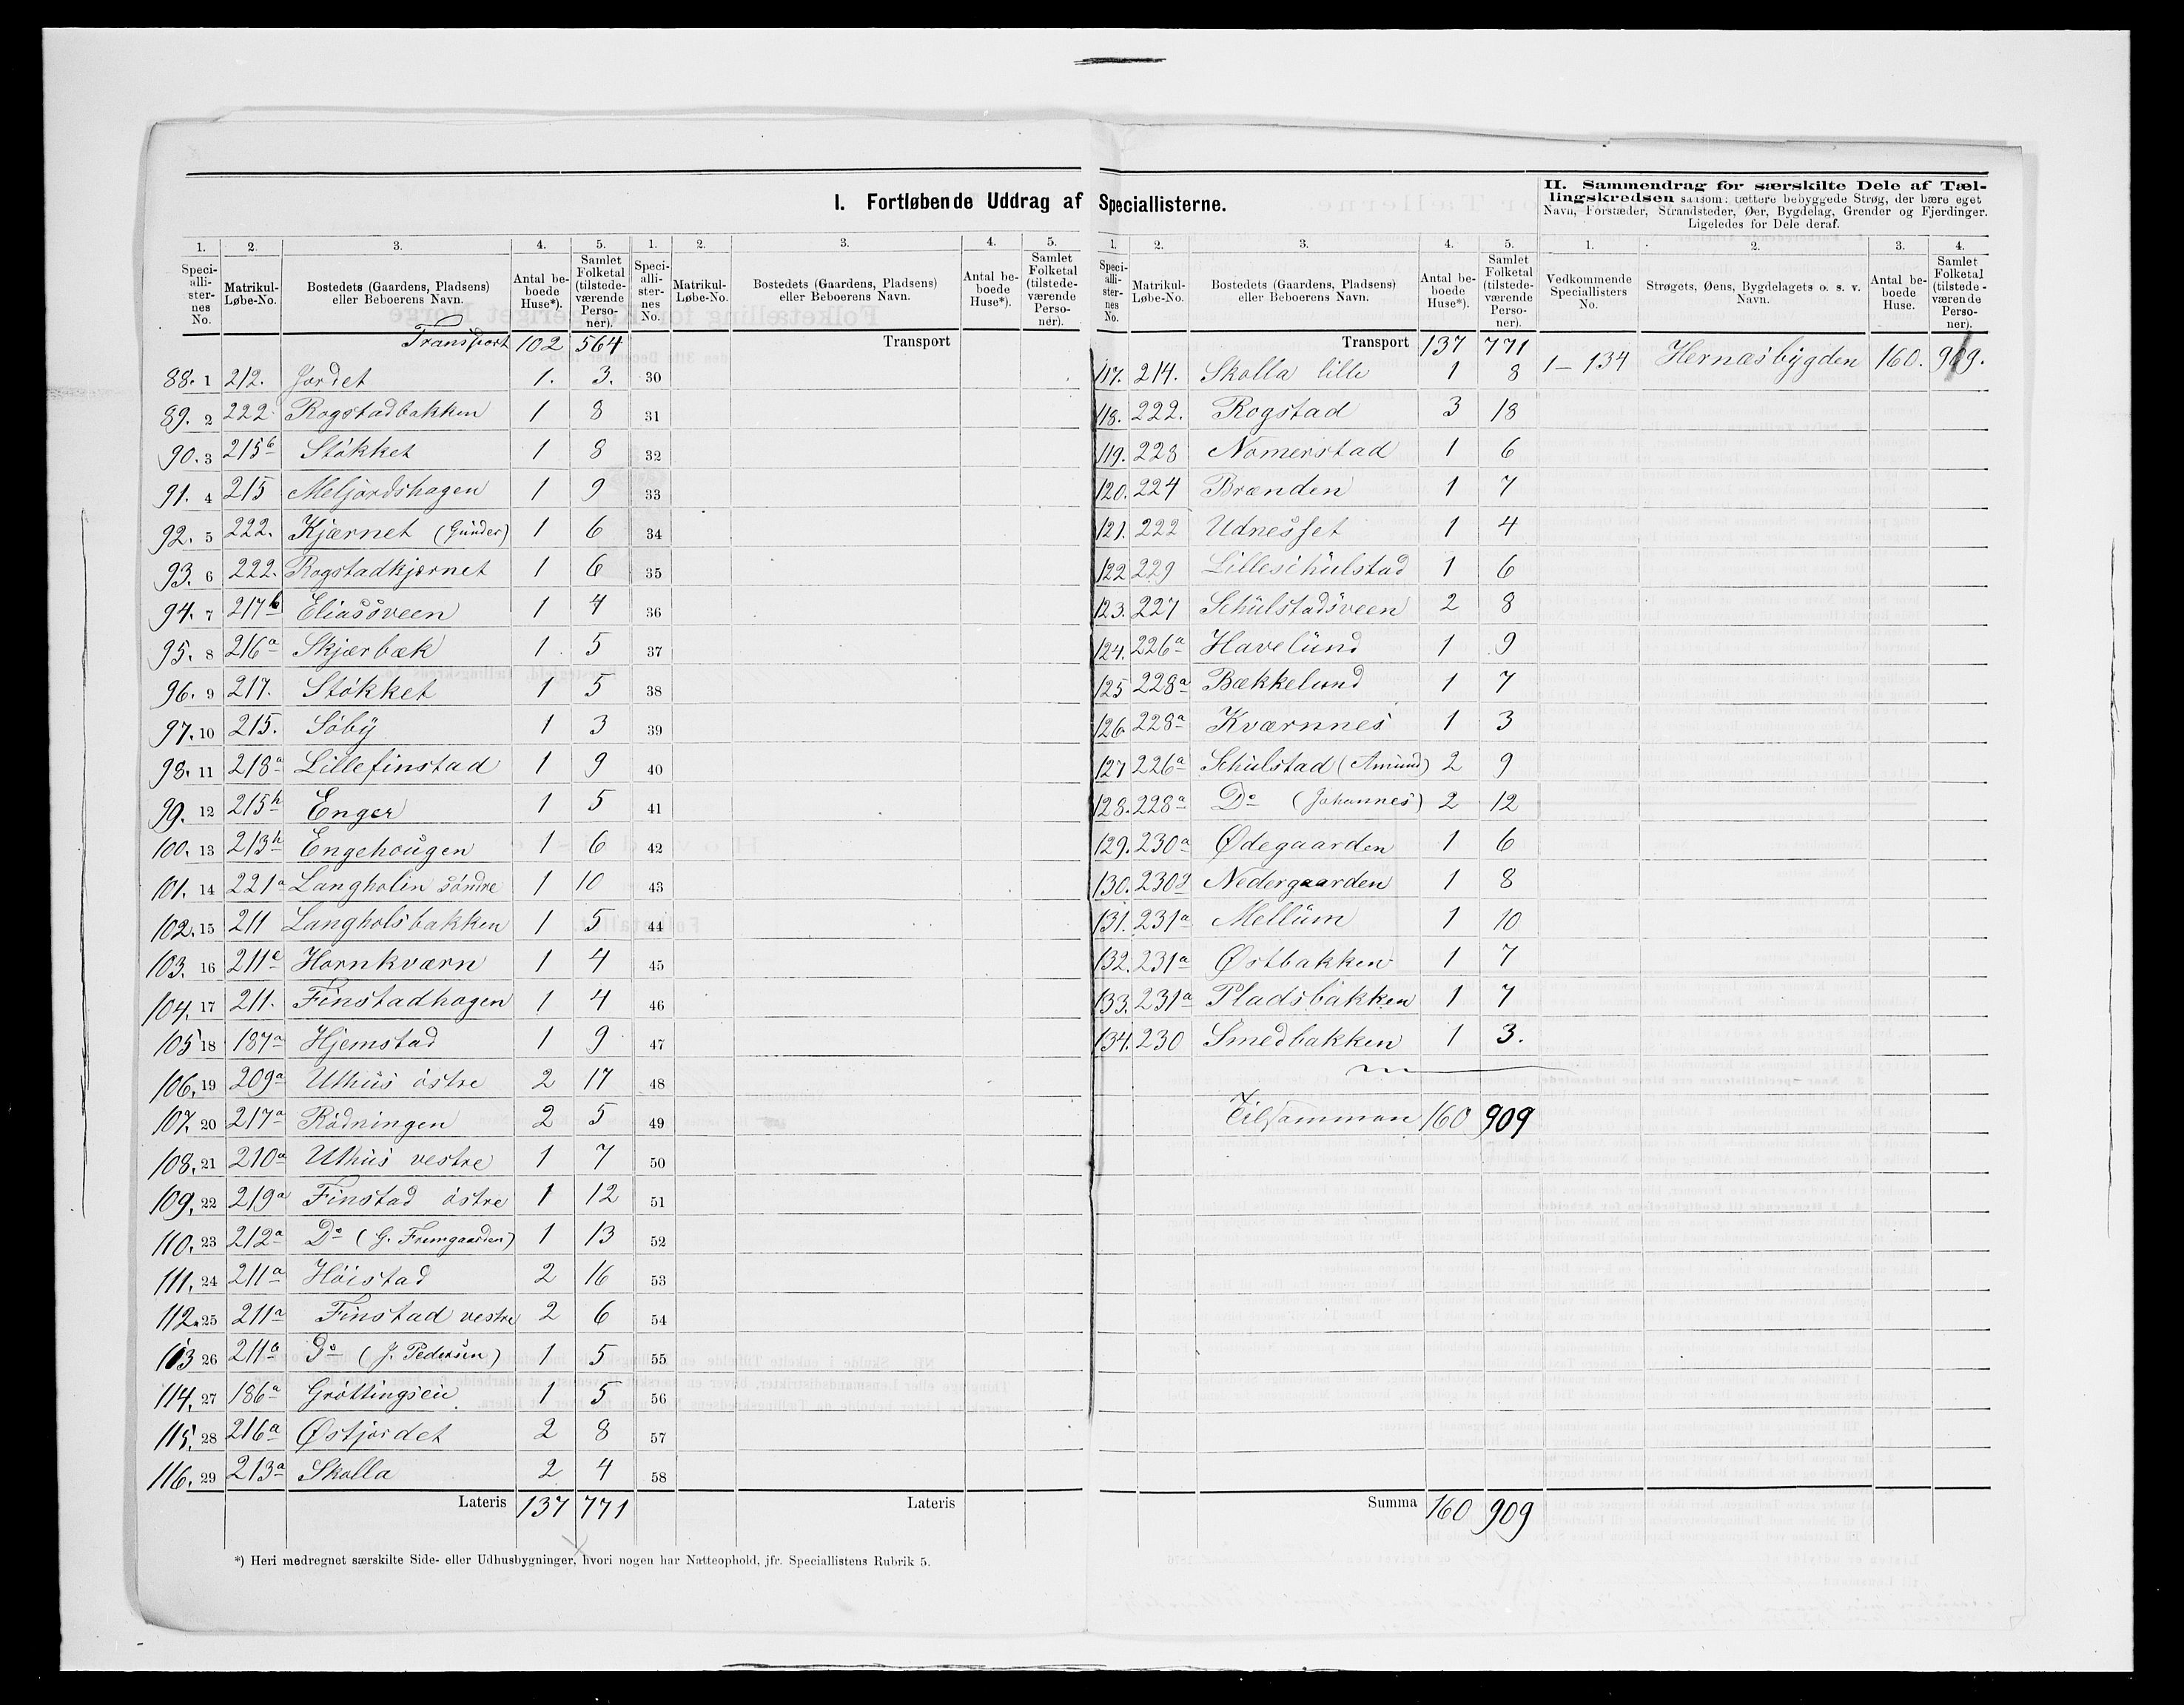 I. Fortløbende Uddrag af Speciallisterne.
II. Sammendrag for særskilte Dele af Tællingskredsen saasom: tættere bebyggede Strøg, der bære eget
Navn, Forstæder, Strandsteder, Øer, Bygdelag, Grender og Fjerdinger.
Ligeledes for Dele deraf.
1. 2. 3. 4. 5. 1. 2. 3. 4. 5.
Speciallisternes No. Matrikul-Løbe-No. Bostedets (Gaardens, Pladsens) eller Beboerens Navn. Antal beboede Huse*). Samlet Folketal (tilstedeværende Personer).
Speciallisternes No. Matrikul-Løbe-No. Bostedets (Gaardens, Pladsens) eller Beboerens Navn. Antal beboede Huse*). Samlet Folketal (tilstedeværende Personer).
Transport 102 564 Transport
88. 1 212. Jordet 1. 3. 30
89. 2 222 Rogstadbakken 1 8 31
90. 3 215b Stökket 1 8 32
91. 4 215 Meljordshagen 1 9 33
92. 5 222. Kjærnet (Gunder) 1 6 34
93. 6 222. Rogstadkjernet 1 6 35
94. 7 217b Eliassveen 1 4 36
95. 8 216a Skjærbæk 1. 5 37
96. 9 217. Stökket 1 5 38
97. 10 215. Söby 1 3 39
98. 11 218a Lillefinstad 1 9 40
99. 12 215h Enger 1 5 41
100. 13 213h Engehougen 1 6 42
101. 14 221a Langholin söndre 1 10 43
102. 15 211 Langholsbakken 1 5 44
103. 16 211e Hornkværn 1 4 45
104. 17 211. Finstadhagen 1 4 46
105 18 187a Hjemstad 1 9 47
106. 19 209a Uthus östre 2 17 48
107. 20 217a Rödningen 2 5 49
108. 21 210a Uthus vestre 1 7 50
109. 22 219a Finstad östre 1 12 51
110. 23 212a Do (G. Fremgaarden) 1 13 52
111. 24 211a Höistad 2 16 53
112. 25 211a Finstad vestre 2 6 54
113 26 211a Do (J. Pedersen) 1 5 55
114. 27 186a Gröttingseie 1 5 56
115. 28 216a Østjordet 2 8 57
116. 29 213a Skolla 2 4 58
Lateris 137 771 Lateris
*) Heri medregnet særskilte Side- eller Udhusbygninger, hvori nogen har Natteophold, jfr. Speciallistens Rubrik 5.
1. 2. 3. 4. 5. 1. 2. 3. 4.
Speciallisternes No. Matrikul-Løbe-No. Bostedets (Gaardens, Pladsens) eller Beboerens Navn. Antal beboede Huse*). Samlet Folketal (tilstedeværende Personer).
Vedkommende Speciallisters No. Strøgets, Øens, Bygdelagets o. s. v. Navn. Antal beboede Huse. Samlet Folketal (tilstedeværende Personer).
Transport 137 771
1-134 Hernæsbygden 160. 909.
117. 214. Skolla lille 1 8
118. 222. Rogstad 3 18
119. 228 Nomerstad 1 6
120. 224 Brænden 1 7
121. 222 Udnesset 1 4
122 229 Lilleschulstad 1 6
123. 227 Schulstadsveen 2 8
124. 226a Havelund 1 9
125 228a Bækkelund 1 7
126 228a Kværnnes 1 3
127 226a Schulstad (Amund) 2 9
128. 228a Do (Johannes) 2 12
129. 230a Ødegaarden 1 6
130. 230d Nedergaarden 1 8
131. 231a Mellum 1 10
132. 231a Østbakken 1 7
133. 231a Pladsbakken 1 7
134. 230 Smedbakken 1 3.
Tilsammen 160 909
Summa 160 909